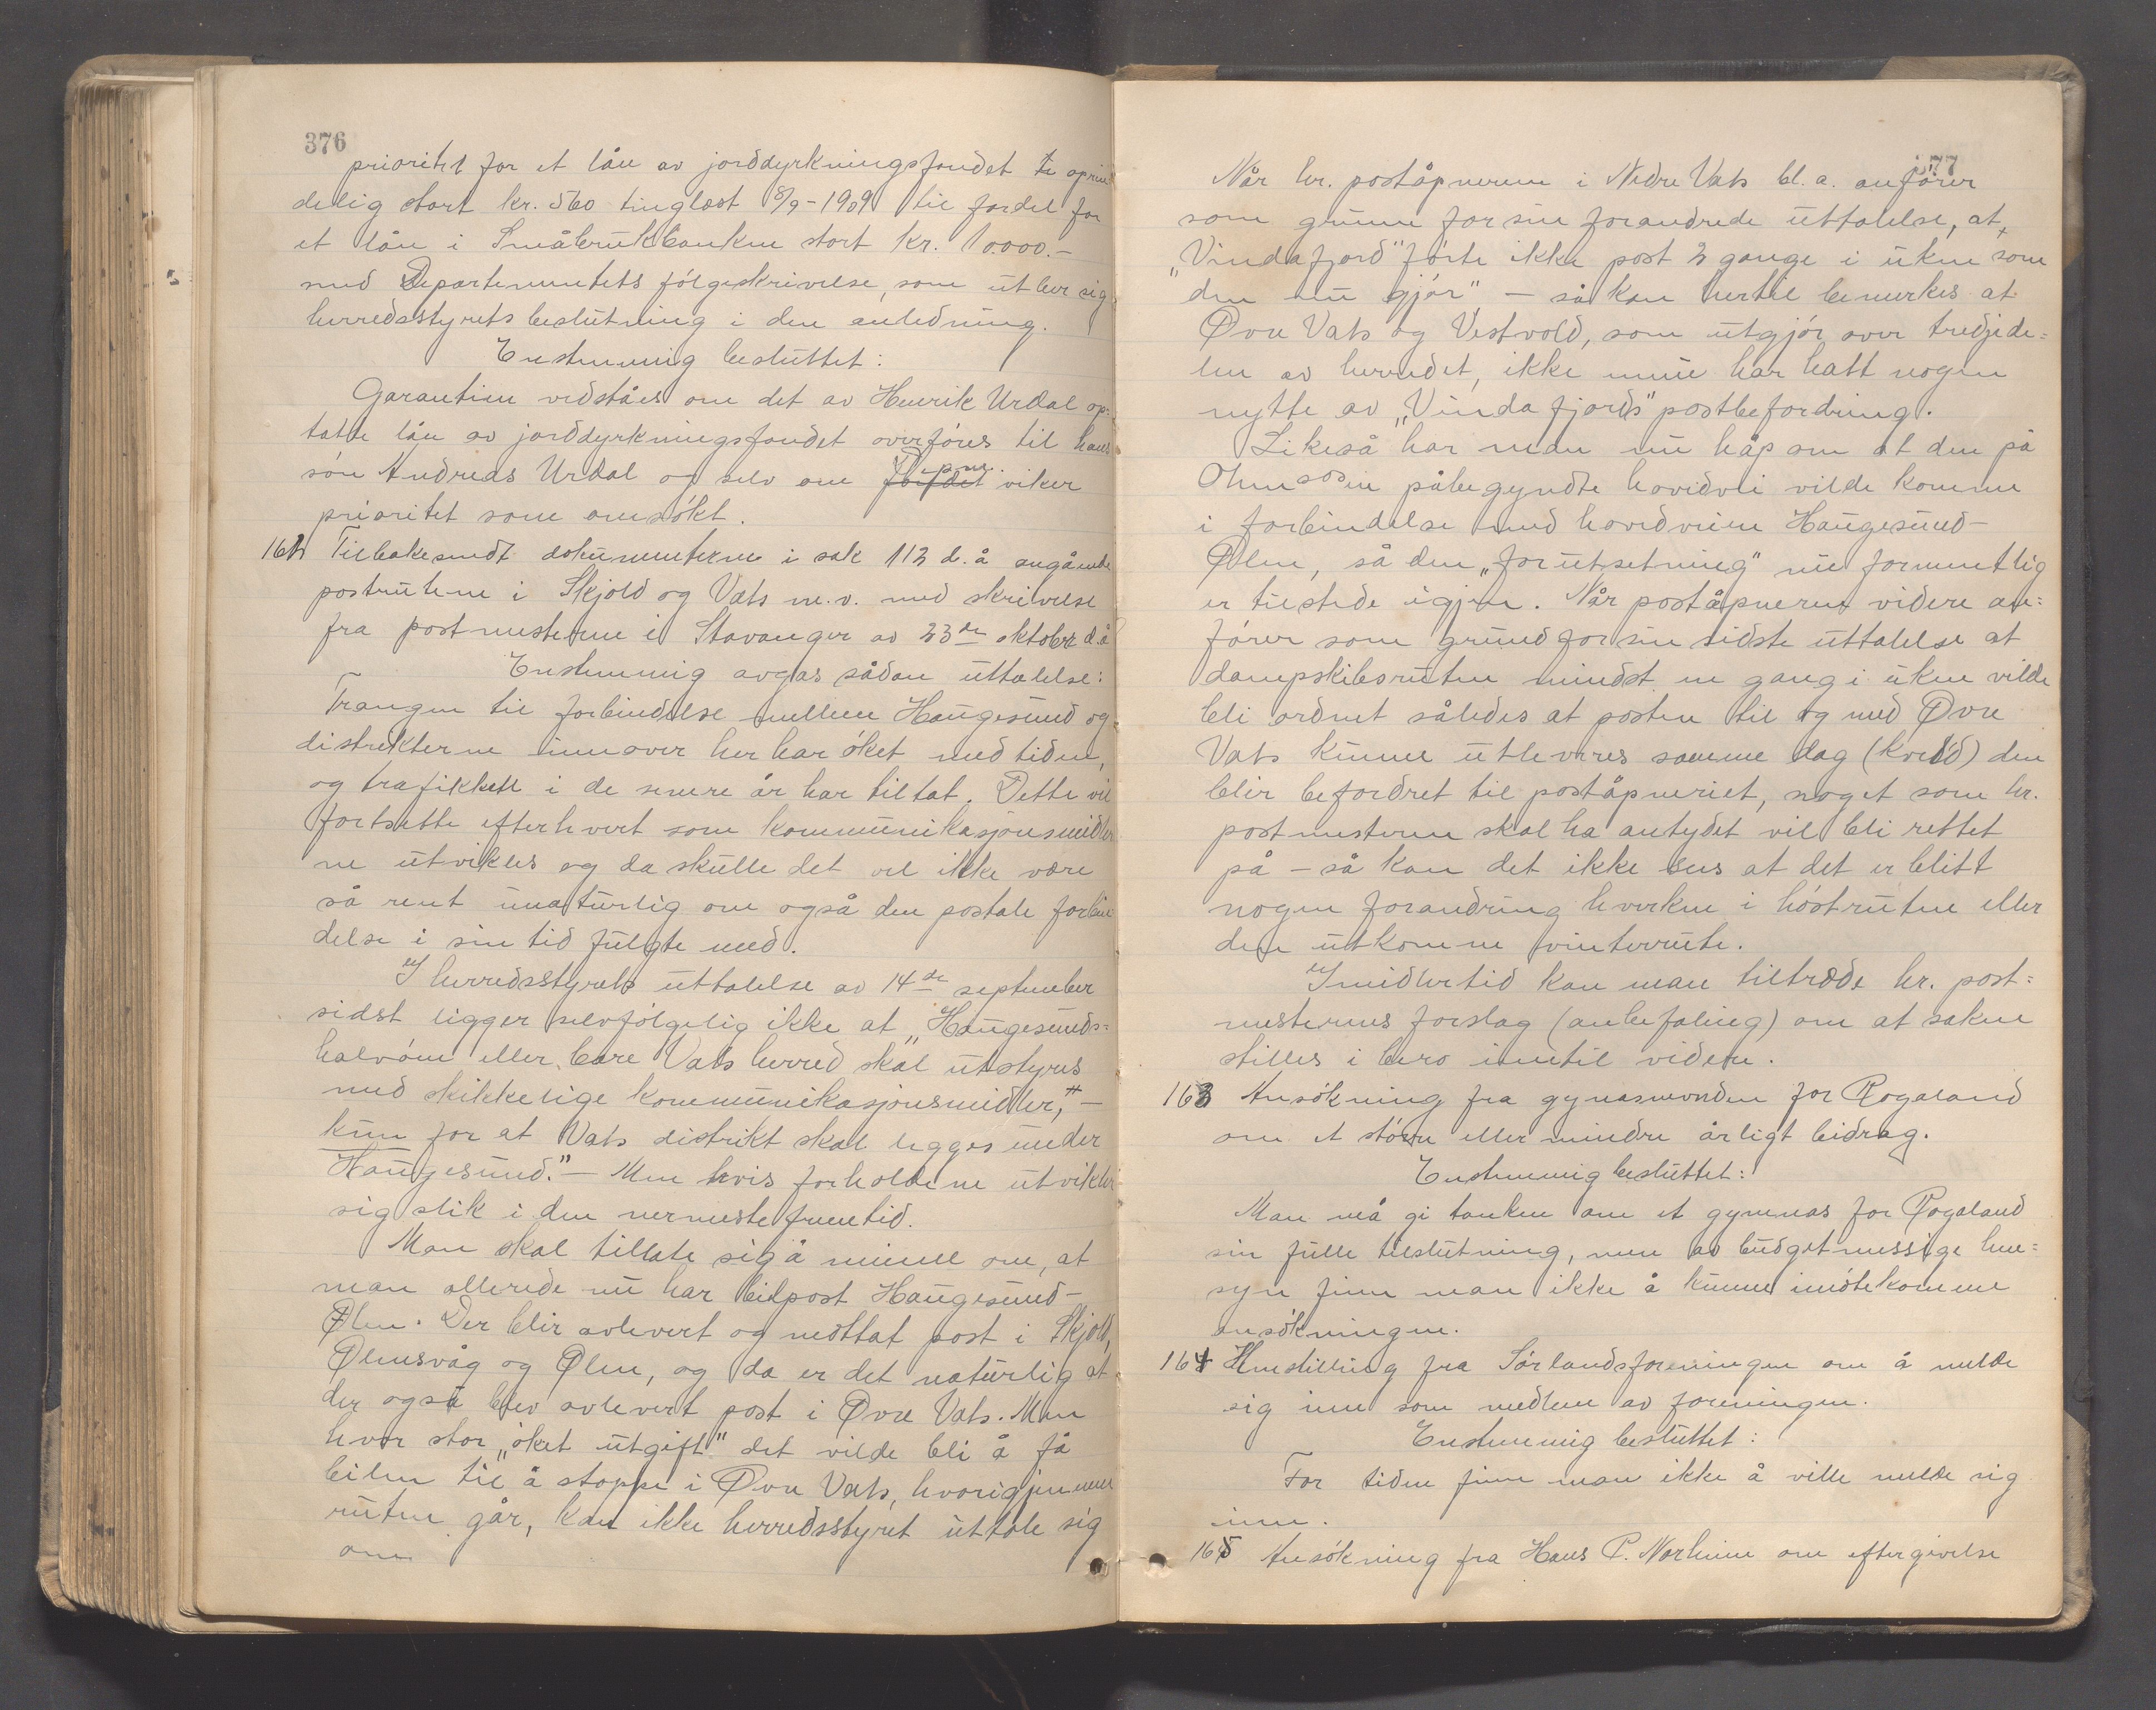 376
prioritet for et lån av jorddyrkningsfondet to oprin
delig stort kr. 560 tinglæst 8/9-1909 til fordel for
et lån i Småbrukbanken stort kr. 10.000.-
med Departementets følgeskrivelse, som utber sig
herredsstyrets beslutning i den anledning.
Enstemmig besluttet:
Garantien vedståes om det av Henrik Urdal op-
tatte lån av jorddyrkningsfondet overføres til hans
søn Andreas Urdal og selv om viker
prioritet som omsøkt.
162 Tilbakesendt dokumenterne i sak 112 d.å angående
postrutene i Skjold og Vats m.v. med skrivelse
fra postmesteren i Stavanger av 23de oktober d.å
Enstemmig avgas sådan uttalelse:
Trangen til forbindelse mellem Haugesund og
distrikterne innover her har øket med tiden,
og trafikken i de senere år har tiltat. Dette vil
fortsette efterhvert som kommunikasjonsmidler
ne utvikles og da skulle det vel ikke være
så rent unaturlig om også den postale forbin
delse i sin tid fulgte med.
I herredsstyrets uttalelse av 14de september
sidst ligger selvfølgelig ikke at „Haugesunds-
halvøen eller bare Vats herred skal utstyres
med skikkelige kommunikasjonsmidler," -
kun for at Vats distrikt skal legges under
Haugesund." - Men hvis forholdene utvikler
sig slik i den nermeste fremtid.
Man skal tillate sig å minne om, at
man allerede nu har bilpost Haugesund-
Ølen. Der blir avlevert og mottat post i Skjold,
Ølensvåg og Ølen, og da er det naturlig at
der også blev avlevert post i Øvre Vats. Men
hvor stor „øket utgift" det vilde bli å få
bilen til å stoppe i Øvre Vats, hvorigjennem
ruten går, kan ikke herredsstyret uttale sig
om
377
Når hr. poståpneren i Nedre Vats bl.a. anfører
som grunn for sin forandrede uttalelse, at,
„Vindafjord" førte ikke post 2 gange i uken som
den nu gjør" - så kan hertil bemerkes at
Øvre Vats og Vestvold, som utgjør over tredjede-
len av herredet, ikke mere har hatt nogen
nytte av „Vindafjords" postbefordring.
Likeså har man nu håp om at den på
påbegyndte hovedvei vilde komme
i forbindelse med hovedveien Haugesund-
Ølen, så den „forutsetning" nu formentlig
er tilstede igjen. Når poståpneren videre an-
fører som grund for sin sidste uttalelse at
dampskibsruten mindst en gang i uken vilde
bli ordnet således at posten til og med Øvre
Vats kunne utleveres samme dag (kveld) den
blir befordret til poståpneriet, noget som hr.
postmesteren skal ha antydet vil bli rettet
på - så kan det ikke sees at det er blitt
nogen forandring hverken i høstruten eller
den utkomne vinterrute.
Imidlertid kan man tiltræde hr. post-
mesternes forslag (anbefaling) om at saken
stilles i bero inntil videre.
163 Ansøkning fra gymasnevnden for Rogaland
om et større eller mindre årligt bidrag.
Enstemmig besluttet:
Man må gi tanken om et gymnas for Rogaland
sin fulle tilslutning, men av budgetmessige hen-
syn finn man ikke å kunne imøtekomme
ansøkningen.
164 Henstilling fra Sørlandsforeningen om å melde
sig inn som medlem av foreningen.
Enstemmig besluttet:
For tiden finn man ikke å ville melde sig
inn.
165 Ansøkning fra Hans P. Norheim om eftergivelse